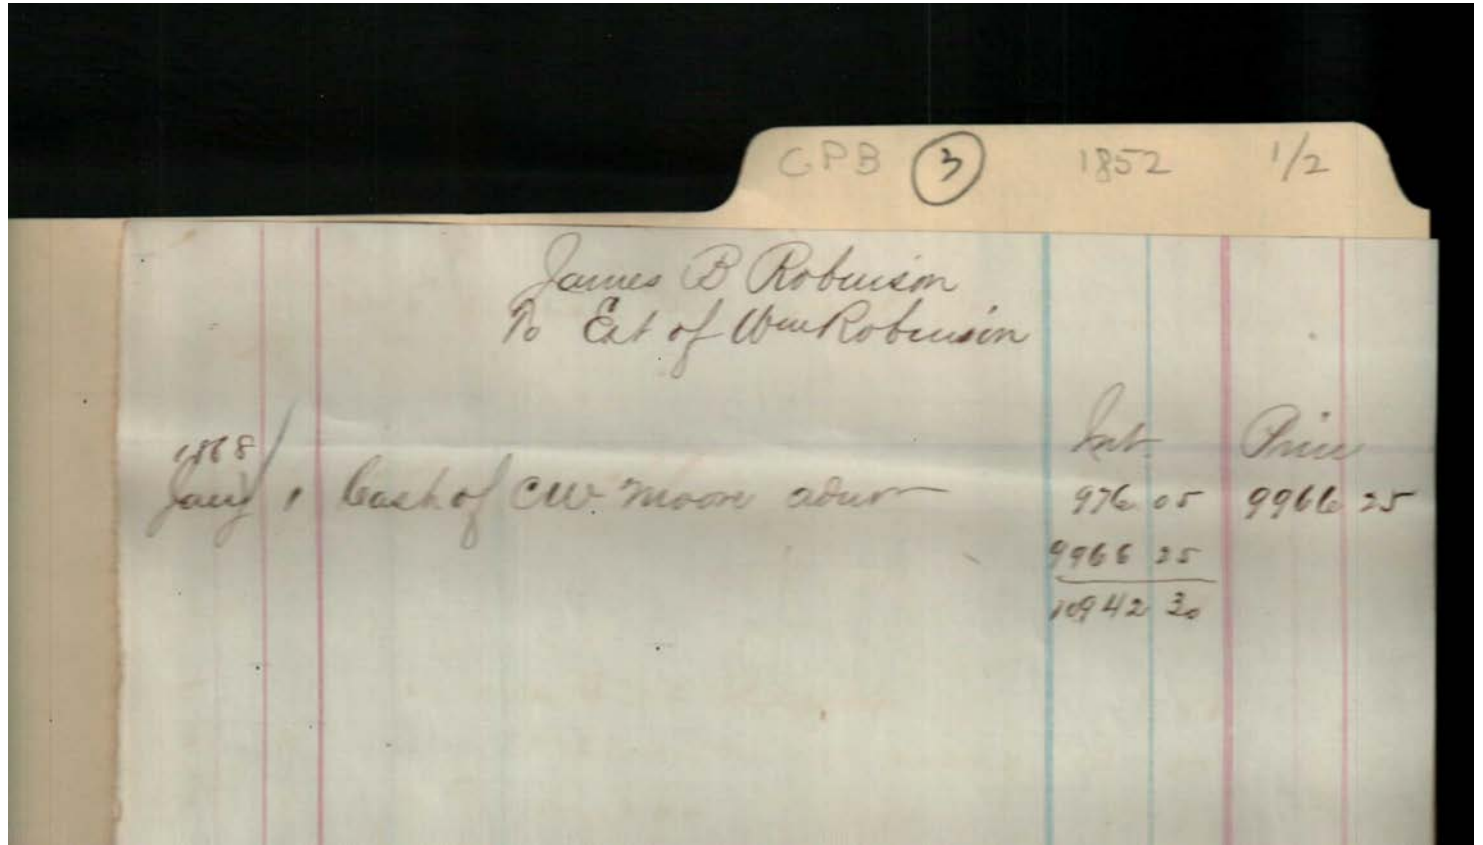 GPB 3 1852 1/2
James B Robinson
To Est of Wm Robinson
1868
Int Prin
Jany 1 Cash of CW Moore admr 976 05 9966 25
9966 25
10942 30